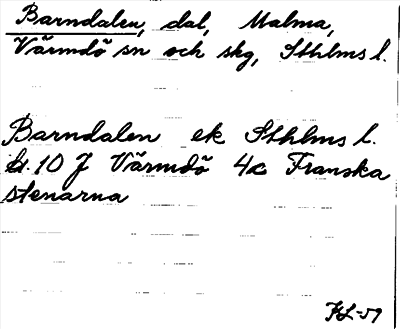 Barndalen, dal, Malma,
Värmdö sn och skg, Sthlms l.
Barndalen ek Sthlms l.
bl. 10 J Värmdö 4c Franska
stenarna